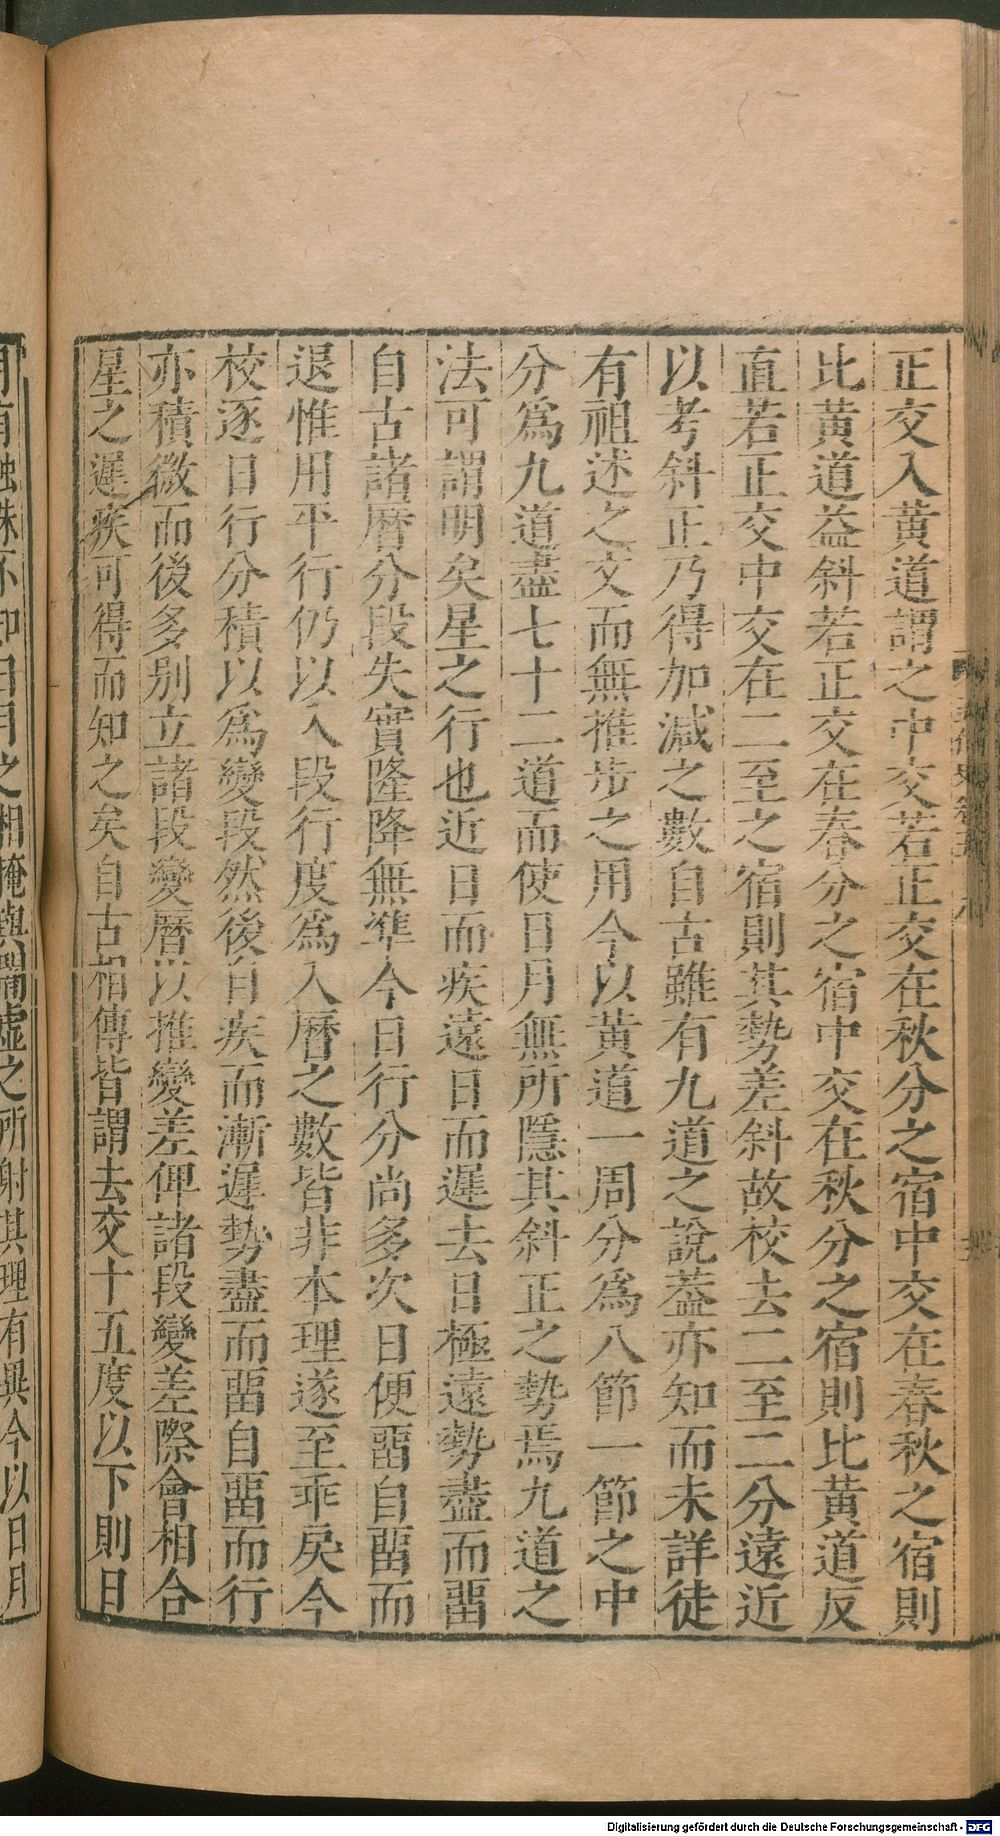 正交入黃道謂之中交若正交在秋分之宿中交在春秋之宿則
比黃道益斜若正交在春分之宿中交在秋分之宿則比黃道反
直若正交中交在二至之宿則其勢差斜故校去二至二分遠近
以考斜正乃得加減之數自古雖有九道之說葢亦知而未詳徒
有祖述之文而無推步之用今以黃道一周分爲八節一節之中
分爲九道盡七十二道而使日月無所隱其斜正之勢焉九道之
法可謂明矣星之行也近日而疾遠日而遲去日極遠勢盡而畱
自古諸曆分段失實隆降無準今日行分尚多次日便畱自畱而
退惟用平行仍以入段行度爲入曆之數皆非本理遂至乖戾今
校逐日行分積以爲變段然後自疾而漸遲勢盡而畱自畱而行
亦積微而後多別立諸段變曆以推變差俾諸段變差際會相合
星之遲疾可得而知之矣自古相傳皆謂去交十五度以下則日
月有蝕殊不知日月之相掩與闇虛之所射其理有異今以日月
Digitalisierung gefördert durch die Deutsche Forschungsgemeinschaft - DFG